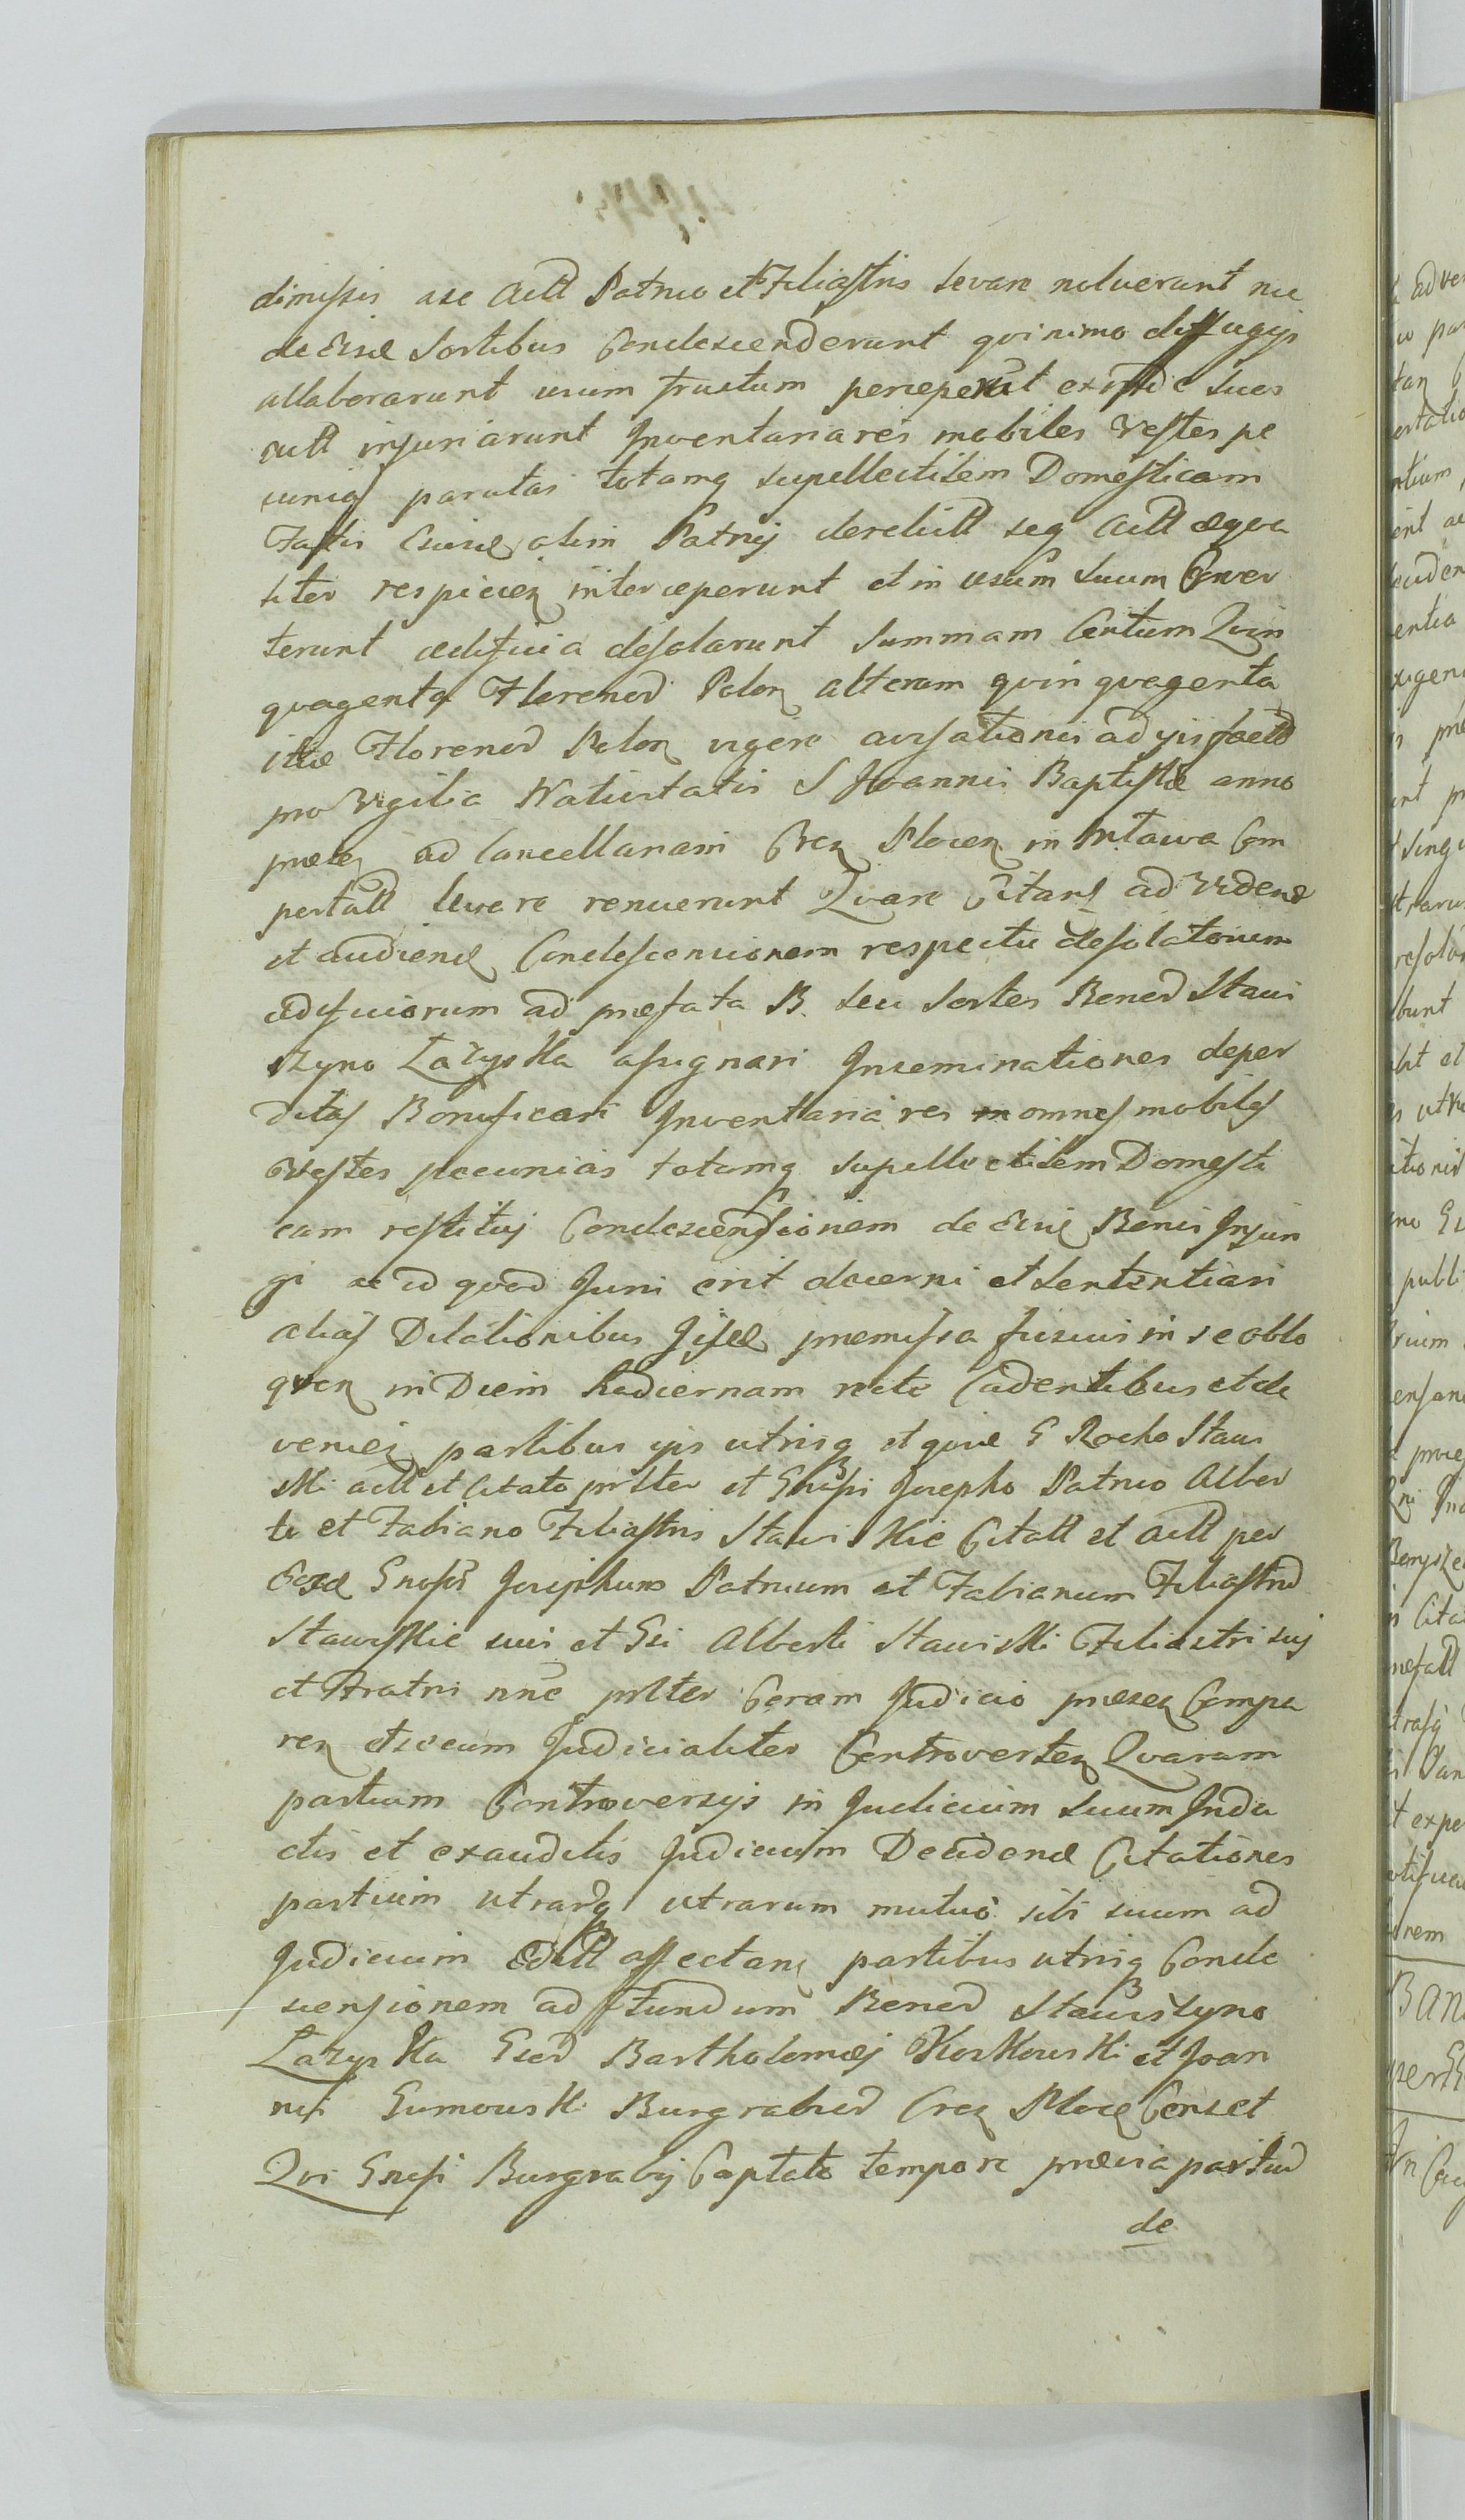 dimissis ase Actt Patruo et Filiastris levare noluerunt nec
de Eisd Sortibus Condescenderunt qvinimo diffugijs
allaborarunt usum fructum perceperunt exinde suos
actt injuriarunt Inventaria res mobiles Vestes pe
cunias paratas totamq supellectilem Domesticam
Fastis Eiusd olim Patrij derelictt seq Actt æqva
liter respicien interceperunt et in usum suum Conver
terunt ædificia desolarunt Summam Centum Qvin
qvaginta Florenor Polon alteram qvinqvaginta
itid Florenor Polon vigore aversationis ad
pro Vigilia Nativitatis S Joannis Baptistæ anno
præsen ad Cancellariam Cren Plocen in Mtawa Com
portatt levare renuerunt Qvare Citand ad Vidend
et audiend Condescensionem respectu desolatorum
ædificiorum ad præfata B. seu Sortes Bonor Stawi
szyno Łazyska assignari Inseminationes deper
ditas Bonificari Inventaria res omnes mobiles
Vestes pecunias totamq supellectilem Domesti
cam restitui Condescensionem de Eisd Bonis Injun
gi ac id qvod Juri erit decerni et Sententiari
alias Dilationibus Jisdd præmissa fusius in se oblo
qven in Diem hodiernam rite Cadentibus et de
venien partibus ijs utrisq et qvid G Rocho Stawi
ski actt et Citato prlter et Gnosi Josepho Patruo Alber
to et Fabiano Filiastris Stawiskie Citatt et actt per
Eosd Gnosos Josephum Patruum et Fabianum Filiastrum
Stawiskie suis et Gsi Alberti Stawiski Filiastri sui
et Fratri nnc prlter Coram Judicio præsen Compa
ren et secum Judicialiter Controverten Qvarum
partium Controversijs in Judicium Suum Indu
ctis et exauditis Judicium Decidend Citationes
partium utrarq utrarum mutuo sibi suum ad
Judicium Editt affectans partibus utrisq Conde
scensionem ad Fundum Bonor Stawiszyno
Łazyska Gsor Bartholomæi Koskowski et Joan
nis Gumowski Burgrabior Cren Plocen Censet
Qvi Gnosi Burgrabij Captato tempore prævia partiu
de